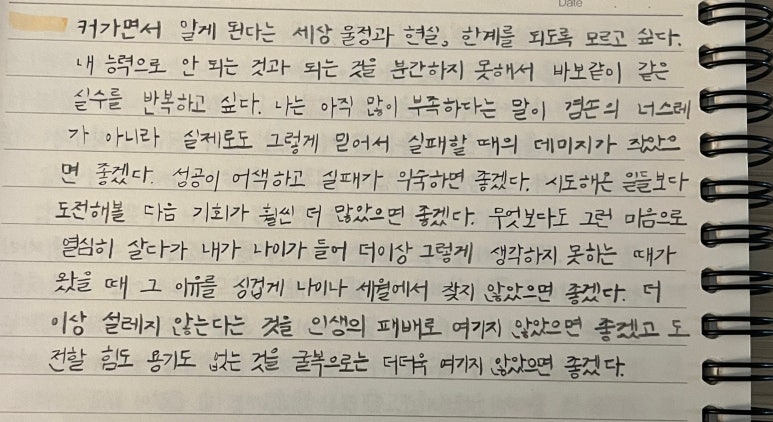 Date
커가면서 알게 된다는 세상 물정과 현실, 한계를 되도록 모르고 싶다.
내 능력으로 안 되는 것과 되는 것을 분간하지 못해서 바보같이 같은
실수를 반복하고 싶다. 나는 아직 많이 부족하다는 말이 겸손의 너스레
가 아니라 실제로도 그렇게 믿어서 실패할 때의 데미지가 작았으
면 좋겠다. 성공이 어색하고 실패가 익숙하면 좋겠다. 시도해온 일들보다
도전해볼 다음 기회가 훨씬 더 많았으면 좋겠다. 무엇보다도 그런 마음으로
열심히 살다가 내가 나이가 들어 더이상 그렇게 생각하지 못하는 때가
왔을 때 그 이유를 싱겁게 나이나 세월에서 찾지 않았으면 좋겠다. 더
이상 설레지 않는다는 것을 인생의 패배로 여기지 않았으면 좋겠고 도
전할 힘도 용기도 없는 것을 굴복으로는 더더욱 여기지 않았으면 좋겠다.